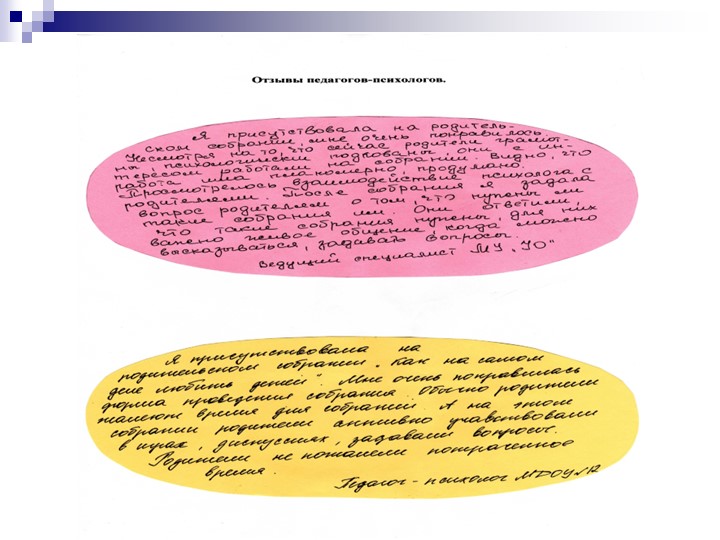 Отзывы педагогов-психологов.
Я присутствовала на родитель-
ском собрании, мне очень понравилось.
Несмотря на то, что сейчас родители грамот-
ны психологически подкованы, они с ин-
тересом работали на собрании. Видно, что
работа шла планомерно, продумано.
Просмотрелось взаимодействие психолога с
родителями. После собрания я задала
вопрос родителям о том, что нужны ли
такие собрания им. Они ответили,
что такие собрания нужны, для них
важно живое общение, когда можно
высказываться, задавать вопросы.
Ведущий специалист МУ „УО"
Я присутствовала на
родительском собрании „Как на самом
деле любить детей". Мне очень понравилась
форма проведения собрания. Обычно родители
жалеют время для собраний. А на этом
собрании родители активно участвовали
в играх, дискуссиях, задавали вопросы.
Родители не пожалели потраченное
время.
Педагог-психолог МДОУ №12